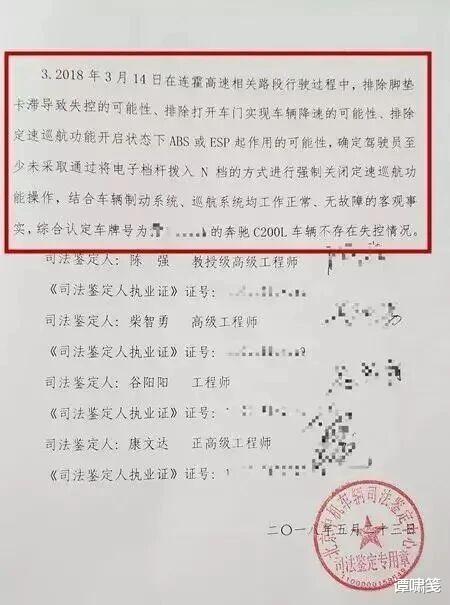 3. 2018 年 3 月 14 日在连霍高速相关路段行驶过程中，排除脚垫
卡滞导致失控的可能性、排除打开车门实现车辆降速的可能性、排除
定速巡航功能开启状态下 ABS 或 ESP 起作用的可能性，确定驾驶员至
少未采取通过将电子档杆拨入 N 档的方式进行强制关闭定速巡航功
能操作，结合车辆制动系统、巡航系统均工作正常、无故障的客观事
实，综合认定车牌号为 的奔驰 C200L 车辆不存在失控情况。
司法鉴定人：陈 强 教授级高级工程师
《司法鉴定人执业证》证号：
司法鉴定人：柴智勇 高级工程师
《司法鉴定人执业证》证号：
司法鉴定人：谷阳阳 工程师
《司法鉴定人执业证》证号：
司法鉴定人：康文达 正高级工程师
《司法鉴定人执业证》证号：
二〇一八年五月二十三日
北京中机车辆司法鉴定中心
司法鉴定专用章
谭啸笺